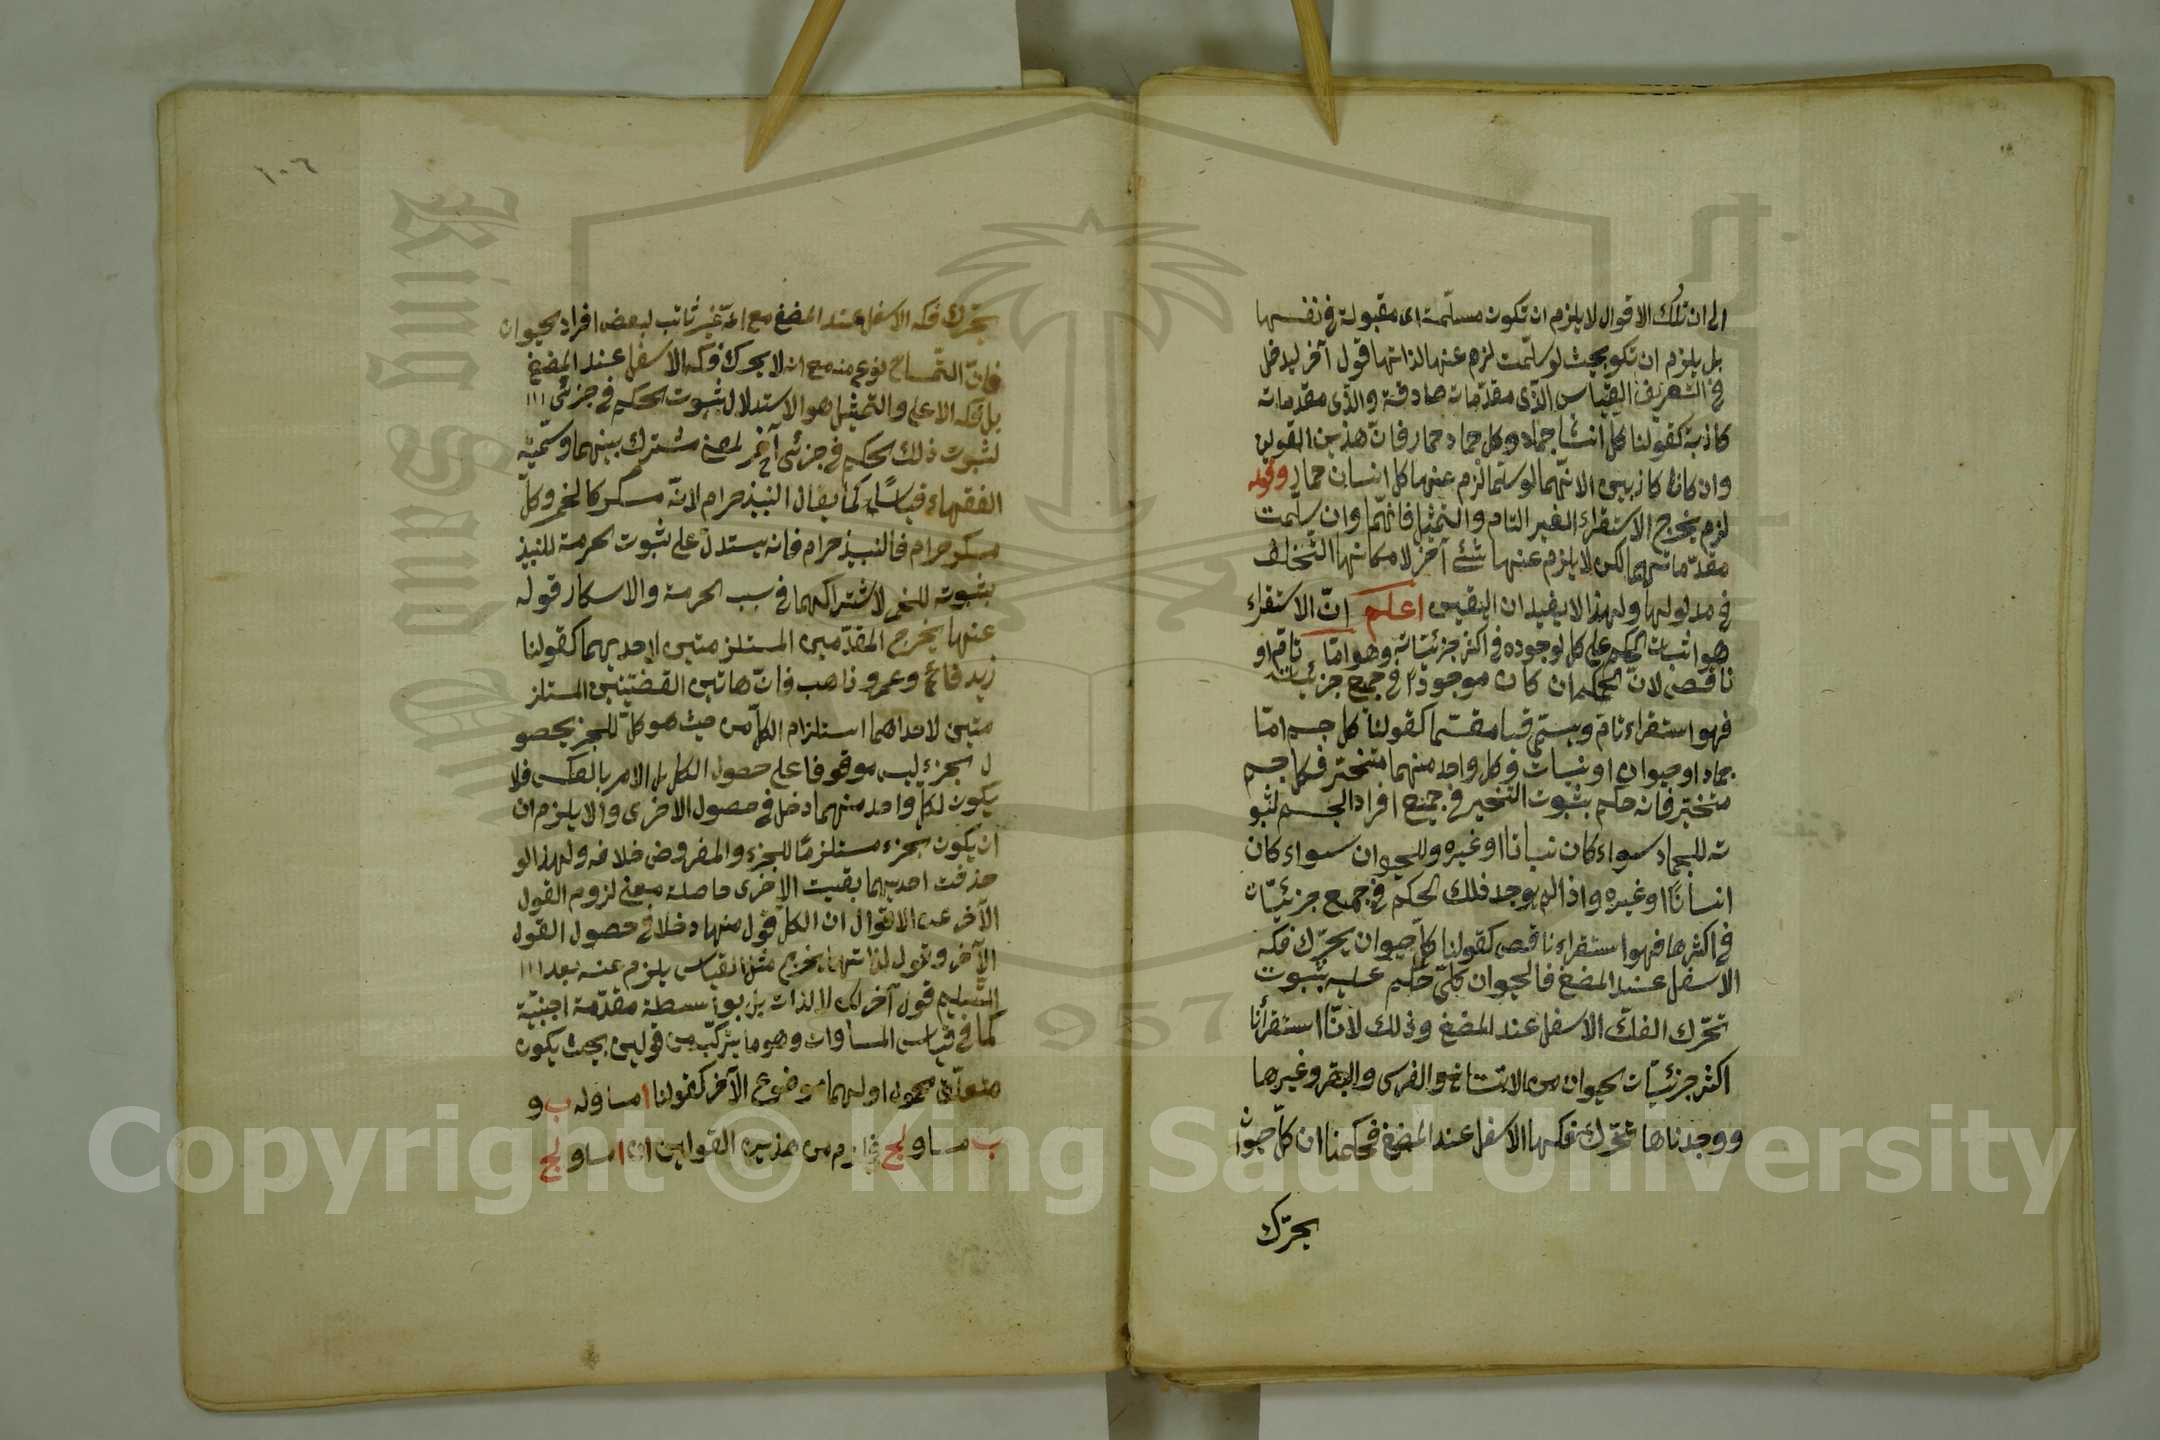 الى ان تلك الاقوال لا يلزم ان تكون مسلّمة اى مقبولة فى نفسها
بل يلزم ان تكو بحيث لو سلّمت لزم عنها لذاتها قول آخر ليدخل
فى التعريف القياس الذّى مقدّمات صادقة والذّى مقدمات
كاذبة كقولنا كل انسٰا جماد وكل جماد حمار فانّ هذين القولين
وان كانا كاذبين الا انّهما لو سلّما لزم عنها كل انسان حمار وقوله
لزم يخرج الاستقراء الغير التام والتمثيل فانّهما وان سلّمت
مقدّماتهما لكن لا يلزم عنها شئ آخر لامكانها التّخلف
فى مدلولها ولهذا لا يفيدان اليقين اعلم انّ الاستقراء
هو اثبات الحكم على كل لوجوده فى اكثر جزئيّاته وهو امّا تام او
ناقص لانّ الحكم ان كان موجودًا فى جميع جزئياته
فهو استقراء تام ويسمّى قيا مقسّما كقولنا كل جسم امّا
جماد او حيوان او نبات وكل واحد منهما متحيّز فكل جسم
متحيّز فانه حكم بثبوت التحيز فى جميع افراد الجسم لثبو
ته للجماد سواء كان نباتا او غيره وللحيوان سواء كان
انسانًا او غيره واذا لم يوجد ذلك الحكم فى جميع جزئيّات
فى اكثرها فهو استقراء ناقص كقولنا كل حيوان يحرّك فكّه
الاسفل عند المضغ فالحيوان كلّى حكم عليه بثبوت
تحرّك الفكّ الاسفل عند المضغ وذلك لانّا استقرأنا
اكثر جزئيّات الحيوان من الانسان والفرس والبقر وغيرها
ووجدناها تحرّك فكها الاسفل عند المضغ فحكمنا ان كلّ حيوٰا
يحرّك
١٠٦
يحرّك فكه الاسفل عند المضغ مع انه غير ثابت لبعض افراد الحيوان
فانّ التّمساح نوع منه مع انه لا يحرك فكه الاسفل عند المضغ
بل فكه الاعلى والتمثيل هو الاستدلال بثبوت الحكم فى جزئى
لثبوت ذلك الحكم فى جزئى آخر لمعنى مشترك بينهما وسمّيه
الفقهاء قياسًا كما يقال النبيذ حرام لانّه مسكر كالخمر وكلّ
مسكر حرام فالنبيذ حرام فانه يستدل على ثبوت الحرمة للنبيذ
بثبوته للخمر لاشتراكهما فى سبب الحرمة والاسكار قوله
عنها يخرج المقدّمين المستلزمتين لاحديهما كقولنا
زيد قائم وعمرو ذاهب فانّ هاتين القضيتين المستلز
متين لاحداهما استلزام الكلّ من حيث هو كلّ للجز بحصو
ل الجزء ليس موقوفا على حصول الكل بل الامر بالعكس فلا
يكون لكلّ واحد منهما دخل فى حصول الاخرى والا يلزم ان
ان يكون الجزء مستلزمًا للجزء والمفروض خلافه ولهذا لو
حذفت احديهما بقيت الاخرى حاصلة معنى لزوم القول
الآخر عن الاقوال ان الكلّ قول منها دخلا فى حصول القول
الآخر وقوله لذاتها يخرج مثل القياس يلزم عنه بعد
التّسليم قول آخر لكن لا لذاته بل بواسطة مقدّمة اجنبيّة
كما فى قياس المساوات وهو ما يتركّب من قولين بحيث يكون
متعلّق محمول اولهما موضوع الآخر كقولنا ا مساو له ب و
ب مساو لج فيلزم من هذين القولين ان ا مساو لج